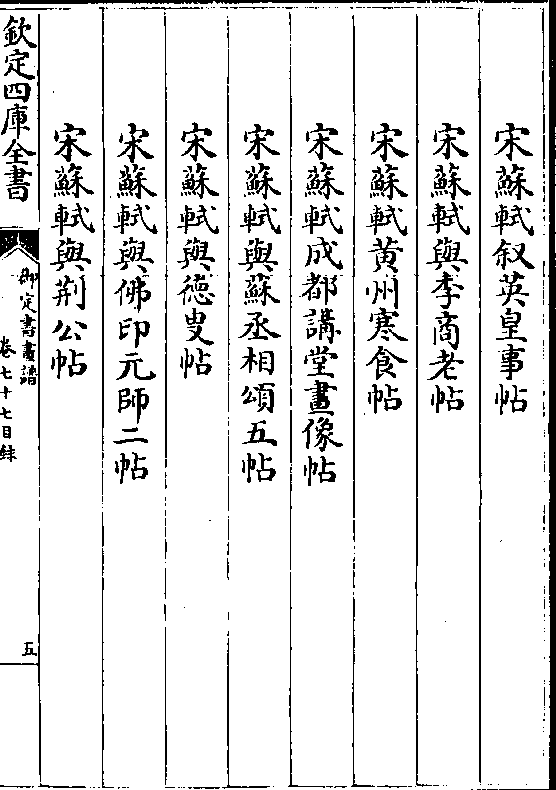 宋蘇軾叙英皇事帖
宋蘇軾與李商老帖
宋蘇軾黄州寒食帖
宋蘇軾成都講堂畫像帖
宋蘇軾與蘇丞相頌五帖
宋蘇軾與德叟帖
宋蘇軾與佛印元師二帖
宋蘇軾與荆公帖
欽定四庫全書
御定書畫譜
卷七十七目録
五